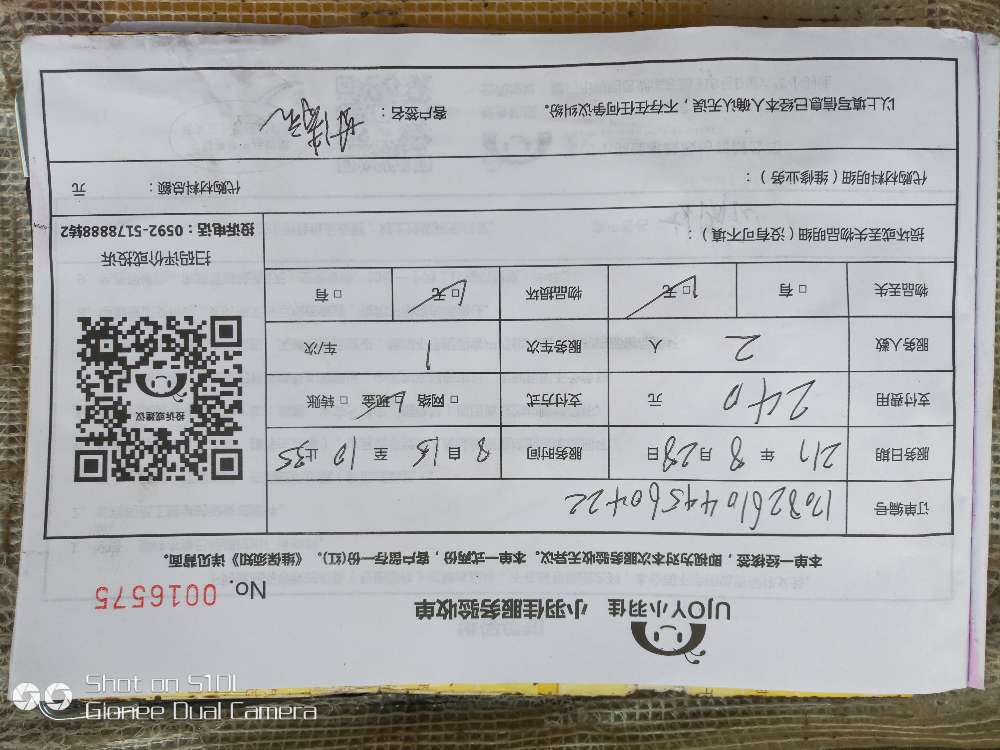 UJOY小羽佳 小羽佳服务验收单
No. 0016575
本单一经核签，即视为对本次服务验收无异议。本单一式两份，客户留存一份(红)。《维保须知》详见背面。
订单编号
服务日期 217 年 8 月 28 日 服务时间 自 8 15 至 10 止35
支付费用 240 元 支付方式 □ 网络 □ 现金 □ 转账
服务人数 2 人 服务车次 1 车/次
物品丢失 □ 有 □ 无 物品损坏 □ 无 □ 有
损坏或丢失物品明细（没有可不填）：
投诉或建议
扫码评价或投诉
投诉电话：0592-5178888转2
代购材料明细（维修业务）： 代购材料总额： 元
以上填写信息已经本人确认无误，不存在任何争议纠纷。 客户签名：
Shot on S10L
Gionee Dual Camera